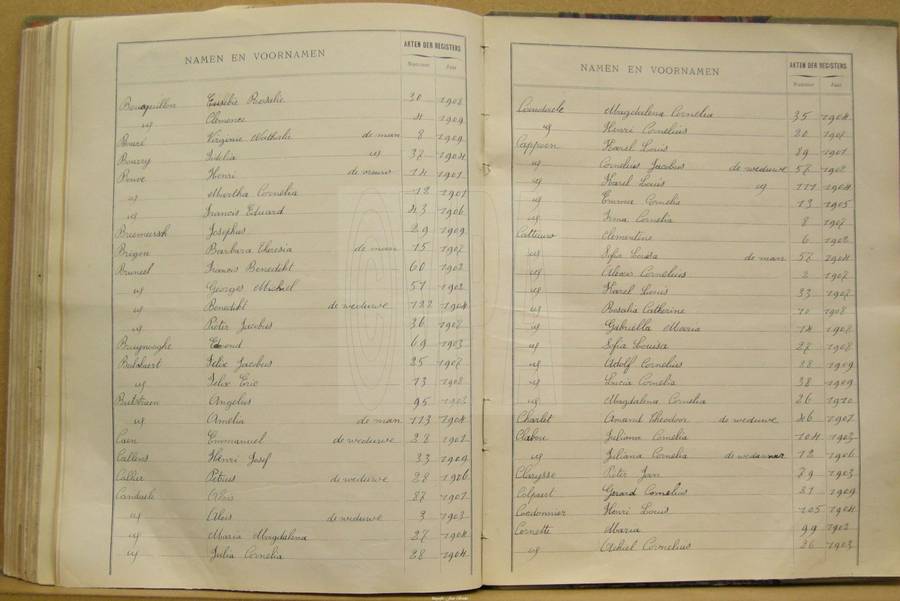 NAMEN EN VOORNAMEN AKTEN DER REGISTERS
Nummer Jaar
Eusebie Rosalie 30 1908
id Clemence 4 1909
Virginie Mathilde de man 8 1909
Bourry Idalia id 37 1904
Bouve Henri de vrouw 14 1901
id Martha Cornelia 12 1901
id Francis Eduard 43 1906
Josephus 29 1909
Brigou Barbara Theresia de man 15 1907
Bruneel Francis Benedikt 60 1902
id Georges Michiel 51 1902
id Benedikt de weduwe 122 1904
id Pieter Jacobus 36 1908
Bruynooghe Edmond 69 1903
Felix Jacobus 25 1907
id Felix Eric 13 1908
Butstraen Angelus 95 1903
id Amelia de man 113 1904
Caen Emmanuel de weduwe 28 1902
Callens Henri Josef 33 1909
Callier Petrus de weduwe 28 1906
Candaele Alois 87 1902
id Alois de weduwe 3 1903
id Maria Magdalena 27 1904
id Julia Cornelia 28 1904
NAMEN EN VOORNAMEN AKTEN DER REGISTERS
Nummer Jaar
Magdalena Cornelia 35 1904
id Henri Cornelius 20 1907
Cappoen Karel Louis 89 1901
id Cornelius Jacobus de weduwe 57 1902
id Karel Louis id 111 1904
id Emma Cornelia 13 1905
id Irma Cornelia 8 1907
Catteeuw Clementine 6 1902
id Sofia Louisa de man 57 1904
id Alexis Cornelius 2 1907
id Karel Louis 33 1907
id Rosalia Catherine 10 1908
id Gabriella Maria 14 1908
id Sofia Louisa 27 1908
id Adolf Cornelius 28 1909
id Lucia Cornelia 38 1909
id Magdalena Cornelia 26 1910
Charlet Amand Theodoor de weduwe 46 1907
Juliana Cornelia 104 1903
id Juliana Cornelia 12 1906
Clarysse Pieter Jan 79 1903
Colpaert Gerard Cornelius 31 1909
Cordonnier Henri Louis 105 1904
Cornette Maria 99 1902
id Achiel Cornelius 26 1903